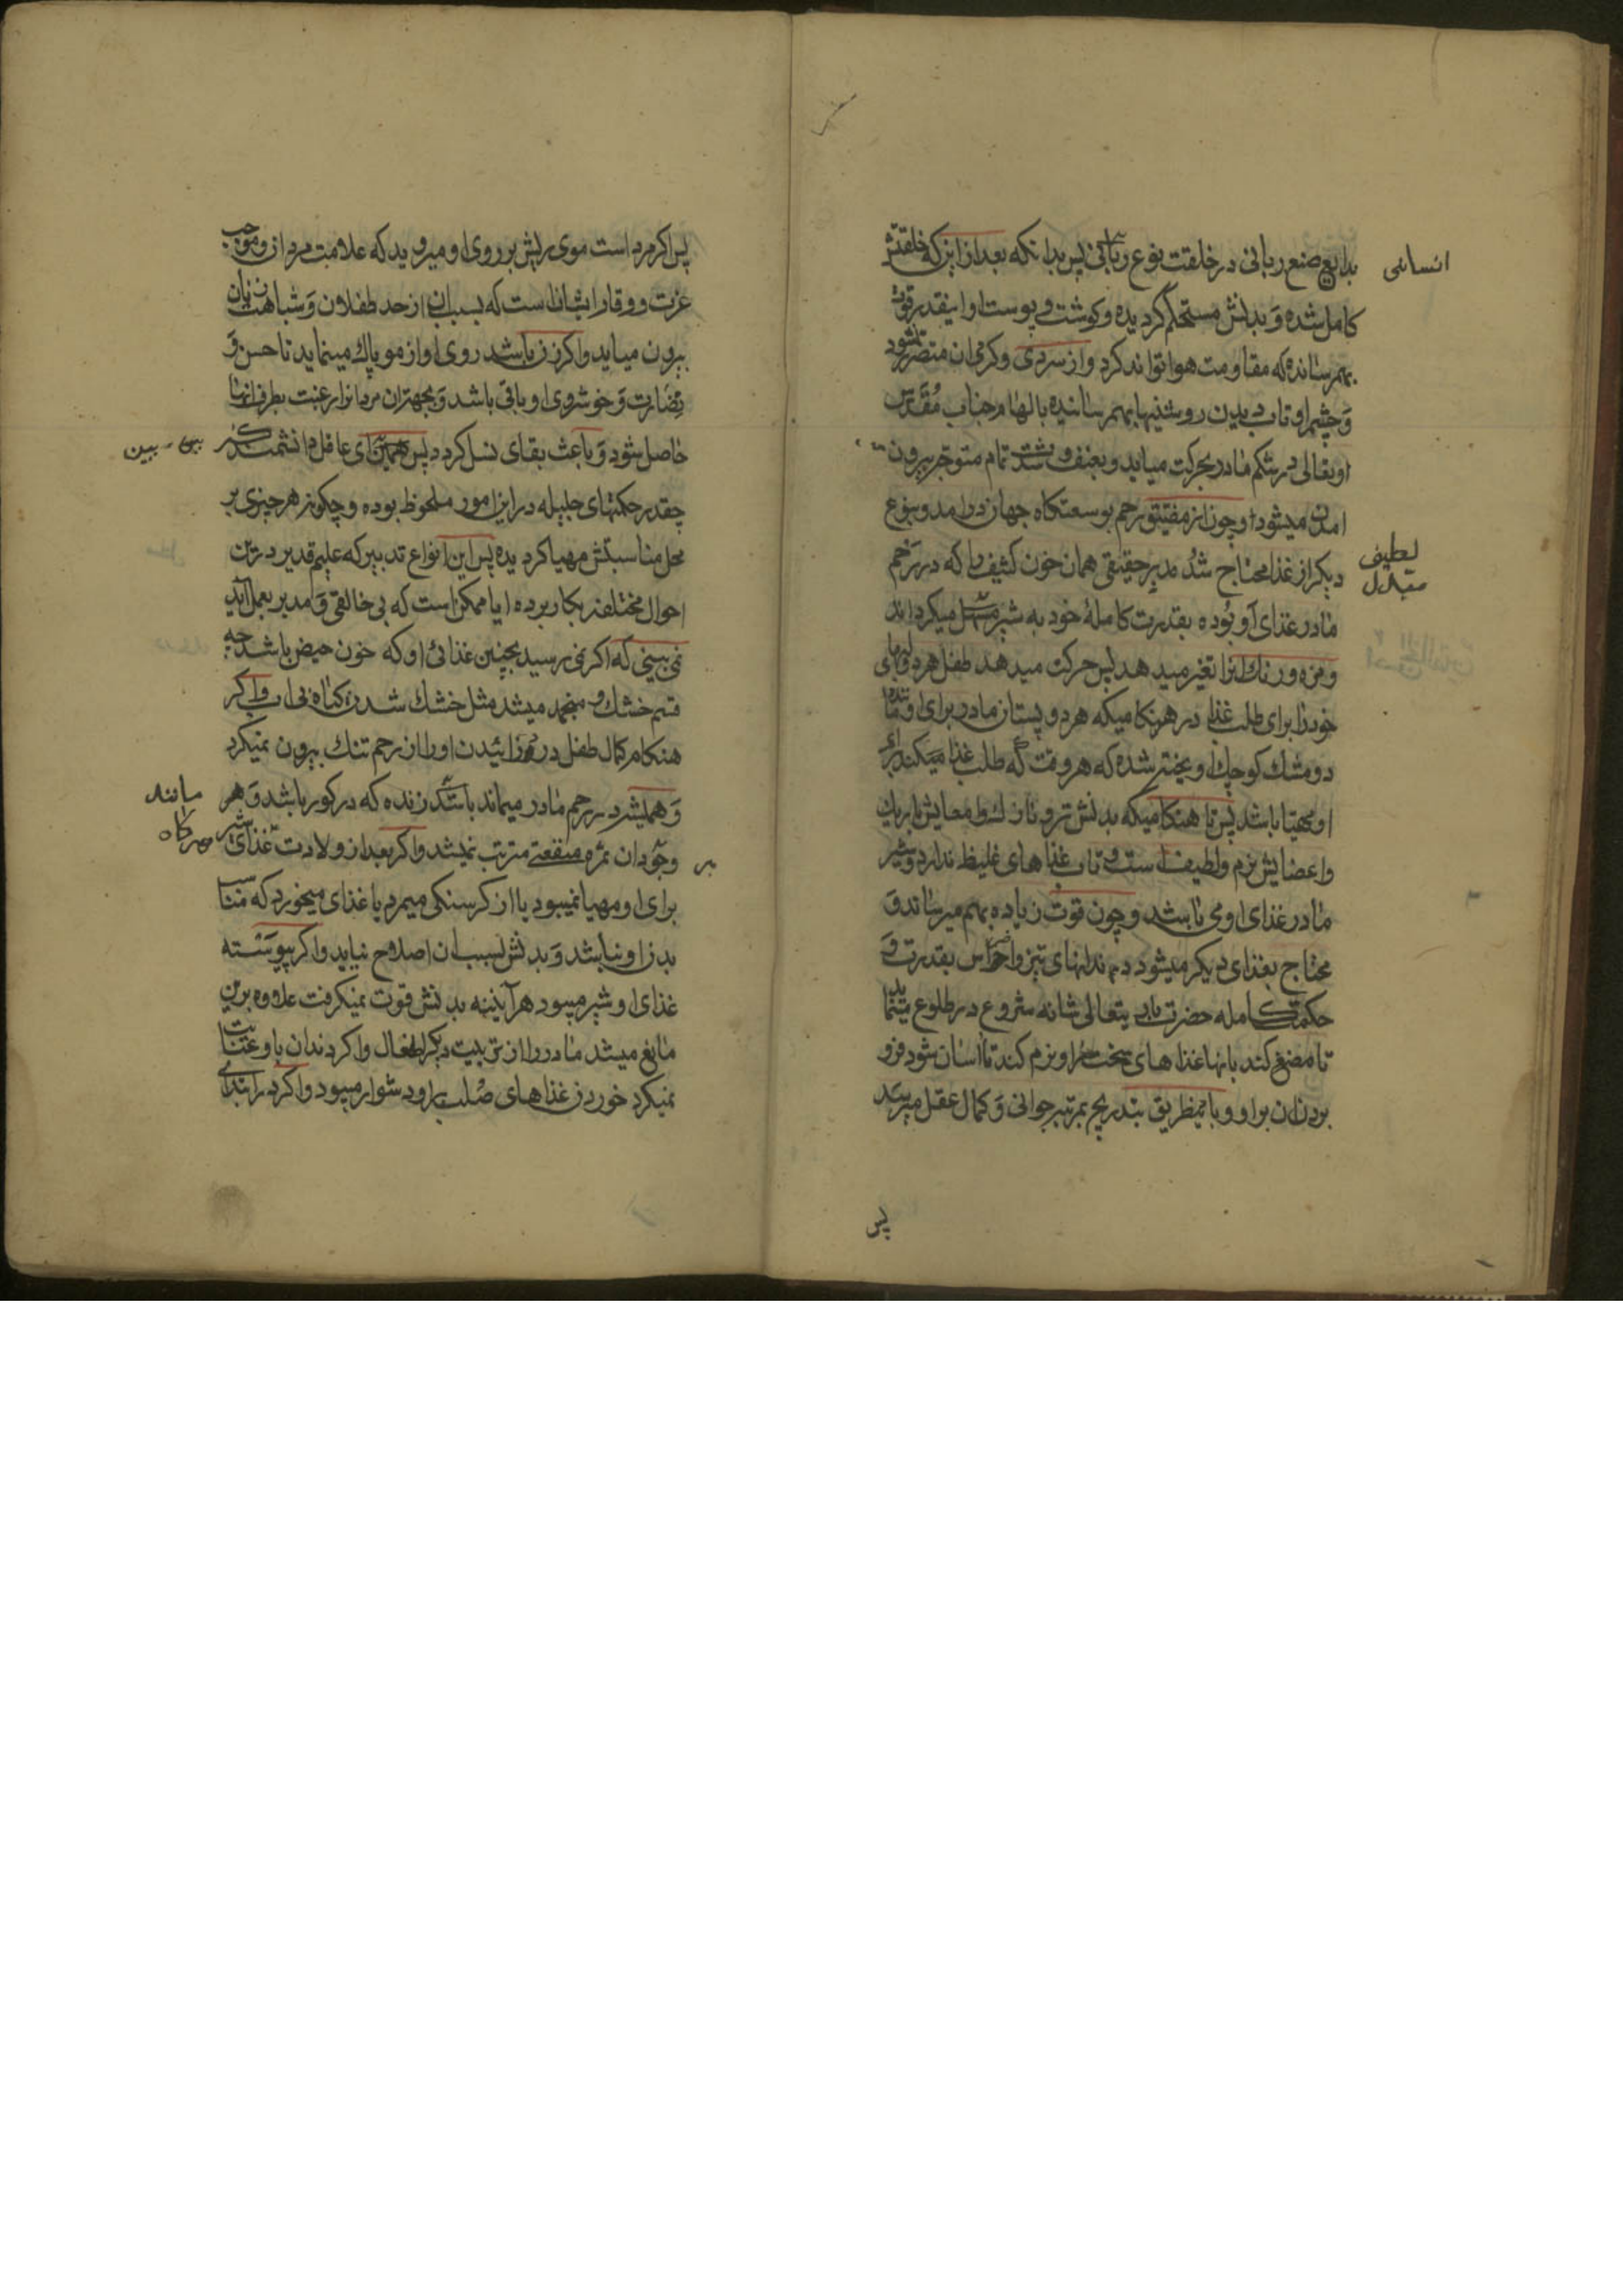 بدایع صنع ربانی در خلقت نوع پس بدانکه بعد از این که خلقتش
انسانی
کامل شده و بدنش مستحکم کردیده و کوشت و پوست او اینقدر قوت
بهمرسانده که مقاومت هوا تواند کرد و از سردی و کرمی ان متضرر نشود
و چشم او تاب دیدن روشنیها بهمرسانیده بالهام جناب مقدس
او تعالی در شکم مادر بحرکت میاید و بعنف و شدت تمام متوجه بیرون
امدن میشود و چون از مضیق رحم بوسعتکاه جهان درامد و بنوع
دیکر از غذا محتاج شد مدبر حقیقی همان خون کثیف را که در رحم
لطیف
متبدل
مادر غذای او بوده بقدرت کامله خود به شیر میکرداند
و مزه و رنك انرا تغیر میدهد پس حرکت میدهد طفل هر دو لبهای
خود را برای طلب غذا در هنکامیکه هر دو پستان مادر برای او مانند
دو مشك کوچك اویخته شده که هر وقت که طلب غذا میکند برای
او مهیا باشد پس تا هنکامیکه بدنش تر و نازك و امعایش باریك
و اعضایش نرم و لطیف است و تاب غذاهای غلیظ ندارد و شیر
مادر غذای او می باشد و چون قوت زیاده بهم میرساند و
محتاج بغذای دیکر میشود دندانهای تیز و اضراس بقدرت و
حکمت کامله حضرت باری تعالی شانه شروع در طلوع مینماید
تا مضغ کند بانها غذاهای سخت را و نرم کند تا اسان شود فرو
بردن ان بر او و باینطریق بتدریج بمرتبه جوانی و کمال عقل میرسد
پس
پس اکر مرد است موی ریش بر روی او میروید که علامت مردان و موجب
عزت و وقار ایشان است که بسبب ان از حد طفلان و شباهت زنان
بیرون میاید و اکر زن باشد روی او از مو پاك مینماید تا حسن و
نضارت و خوشروی او باقی باشد و بجهت ان مردانرا رغبت بطرف انها
حاصل شود و باعث بقای نسل کردد پس ای عاقل دانشمند
چقدر حکمتهای جلیله در این امور ملحوظ بوده و چکونه هر چیزی بر
محل مناسبش مهیا کردیده پس این انواع تدبیر که علیم قدیر در این
احوال مختلفه بکار برده ایا ممکن است که بی خالقی و مدبر بعمل اید
نمی بینی که اکر نمی رسید بجنین غذائی او که خون حیض باشد چه
قسم خشك و منجمد میشد مثل خشك شدن کیاه بی اب و اکر
هنکام کمال طفل درد زائیدن او را از رحم تنك بیرون نمیکرد
و همیشه در رحم مادر میماند زنده که در کور باشد و هر
مانند
هرکاه
وجود ان ثمره منفعتی مترتب نمیشد و اکر بعد از ولادت غذای شیر
بر
برای او مهیا نمیبود یا از کرسنکی میمرد یا غذای میخورد که مناسب
بدن او نباشد و بدنش بسبب ان اصلاح نیاید و اکر پیوسته
غذای او شیر میبود هر آینه بدنش قوت نمیکرفت علاوه بر این
مانع میشد مادر را از تربیت دیکر اطفال و اکر دندان باو عنایت
نمیکرد خوردن غذاهای صلب بر او دشوار میبود و اکر در ابتدای